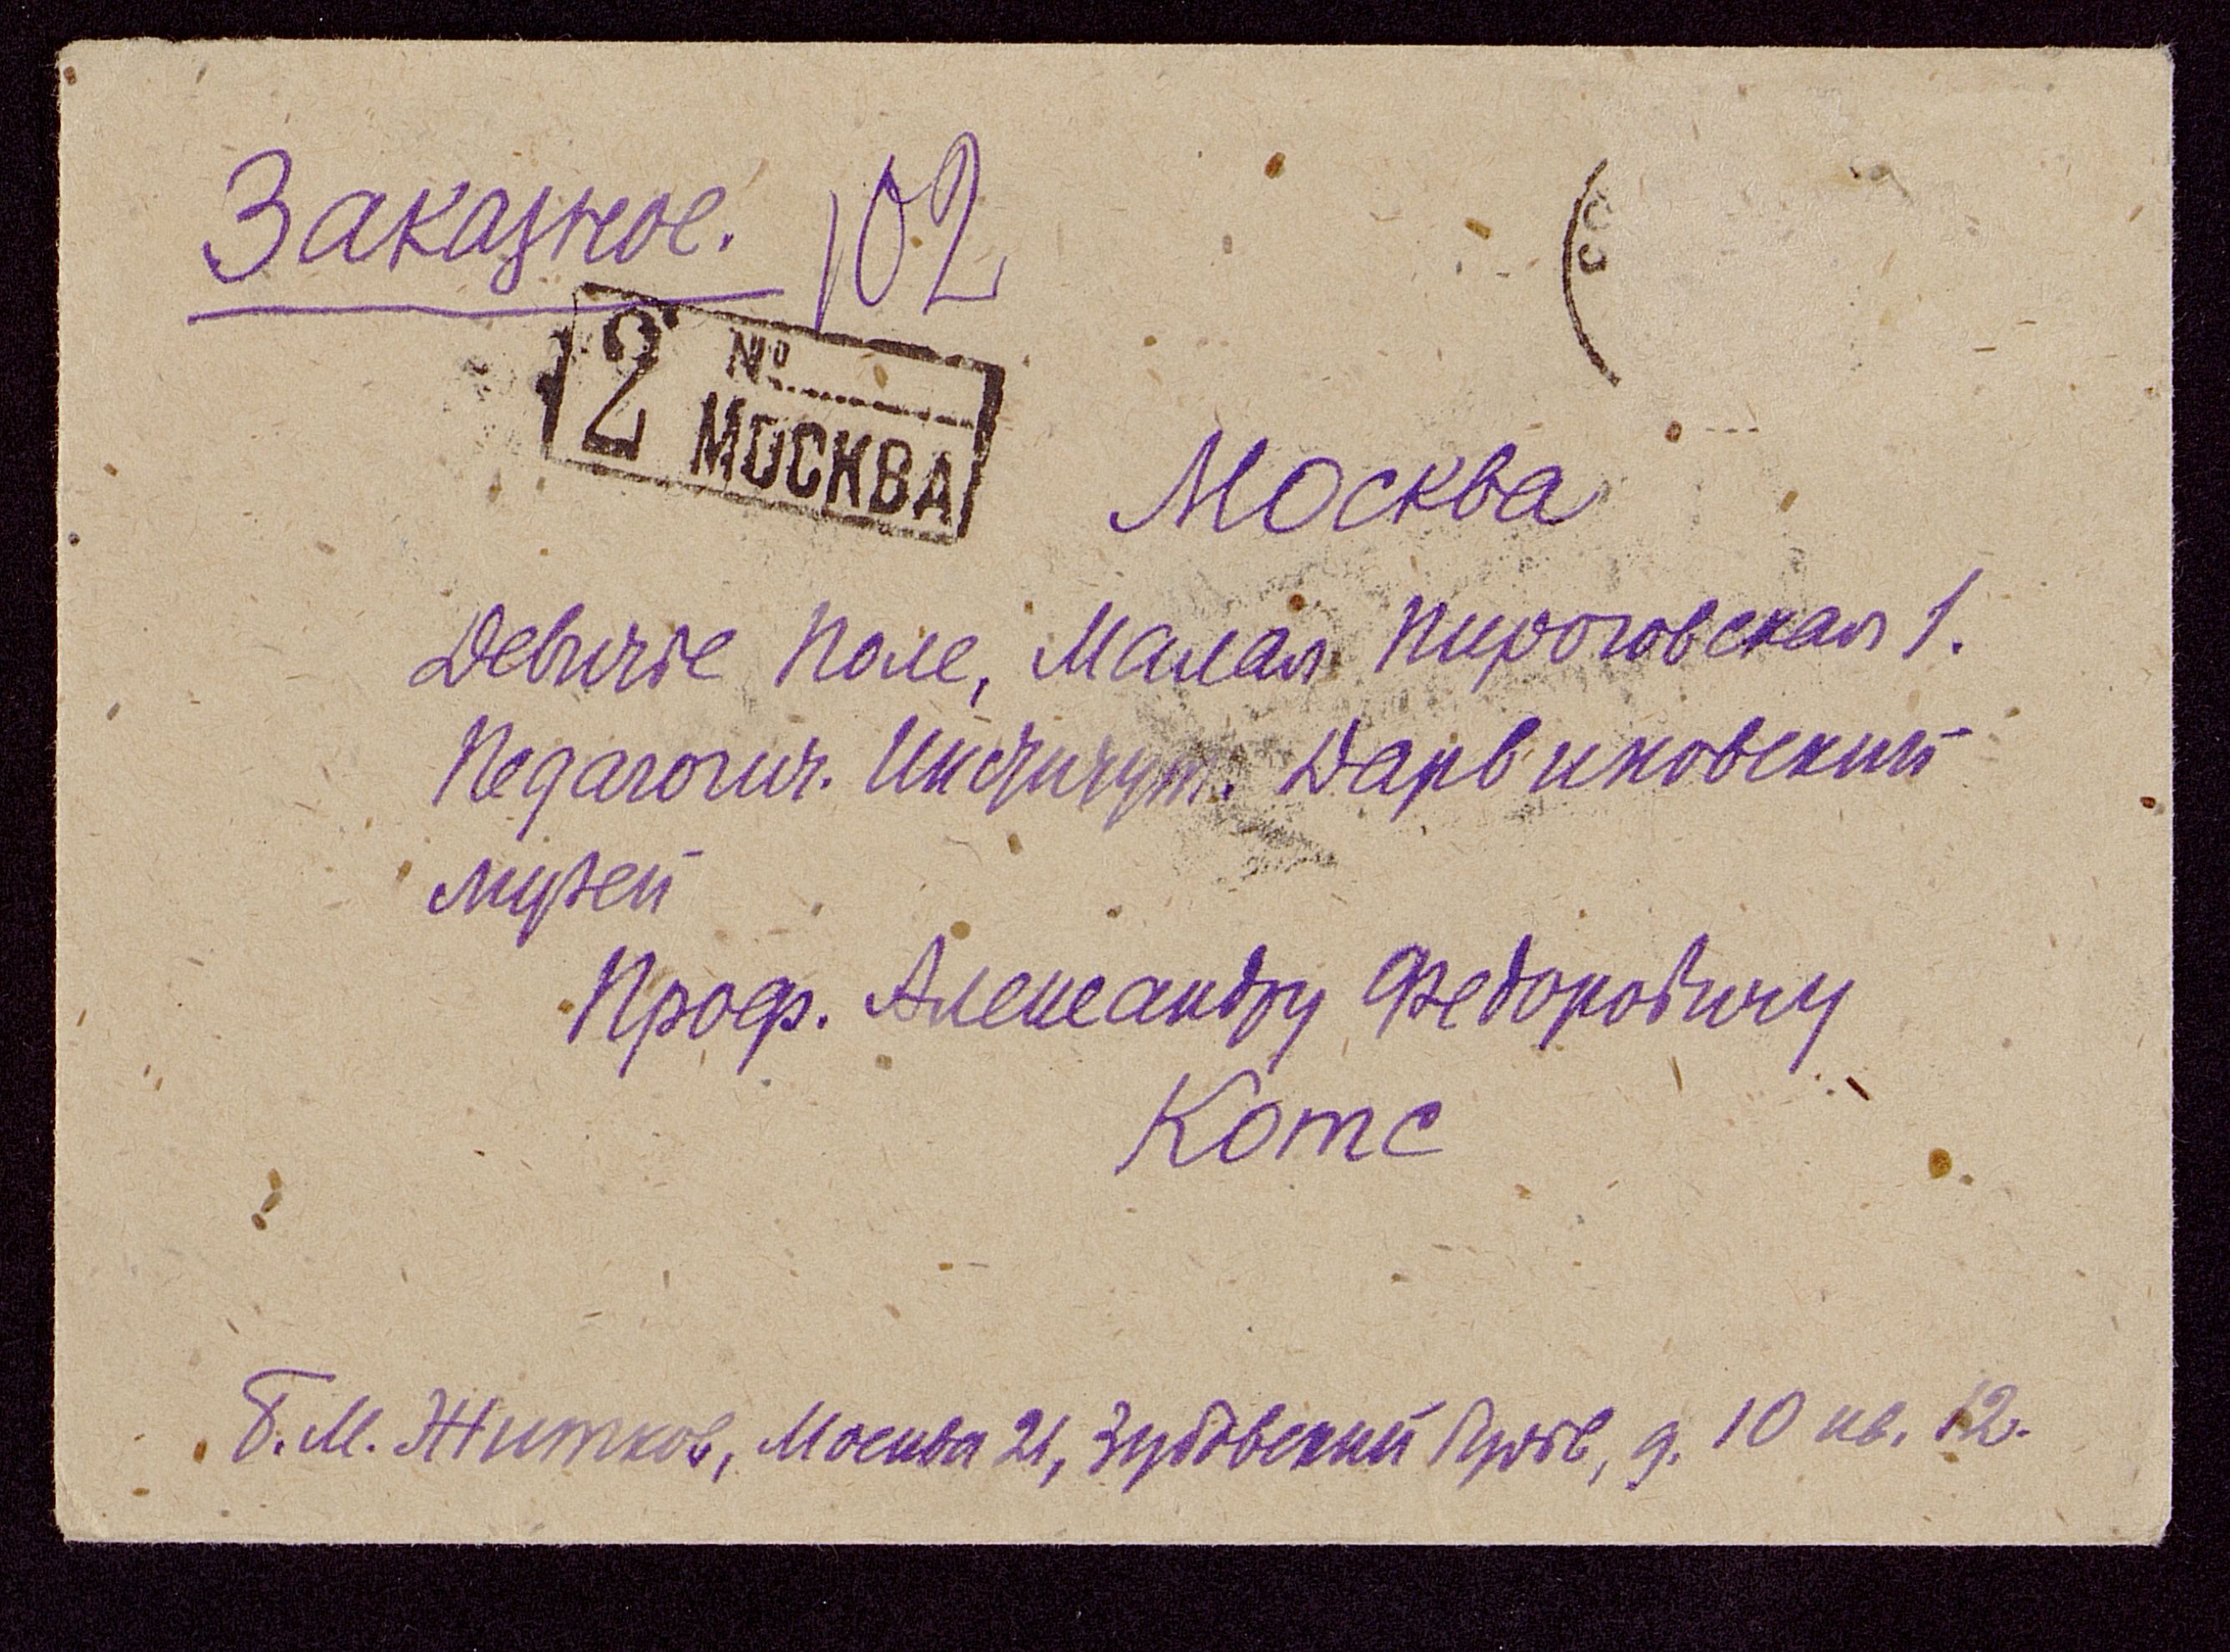 Заказное. 102
2 №
МОСКВА
Москва
Девичье Поле, Малая Пироговская 1.
Педагогич. Институт. Дарвиновский
музей
Проф. Александру Федоровичу
Котс
Б. М. Житков, Москва 21, Зубовский д. 10 кв. 12.